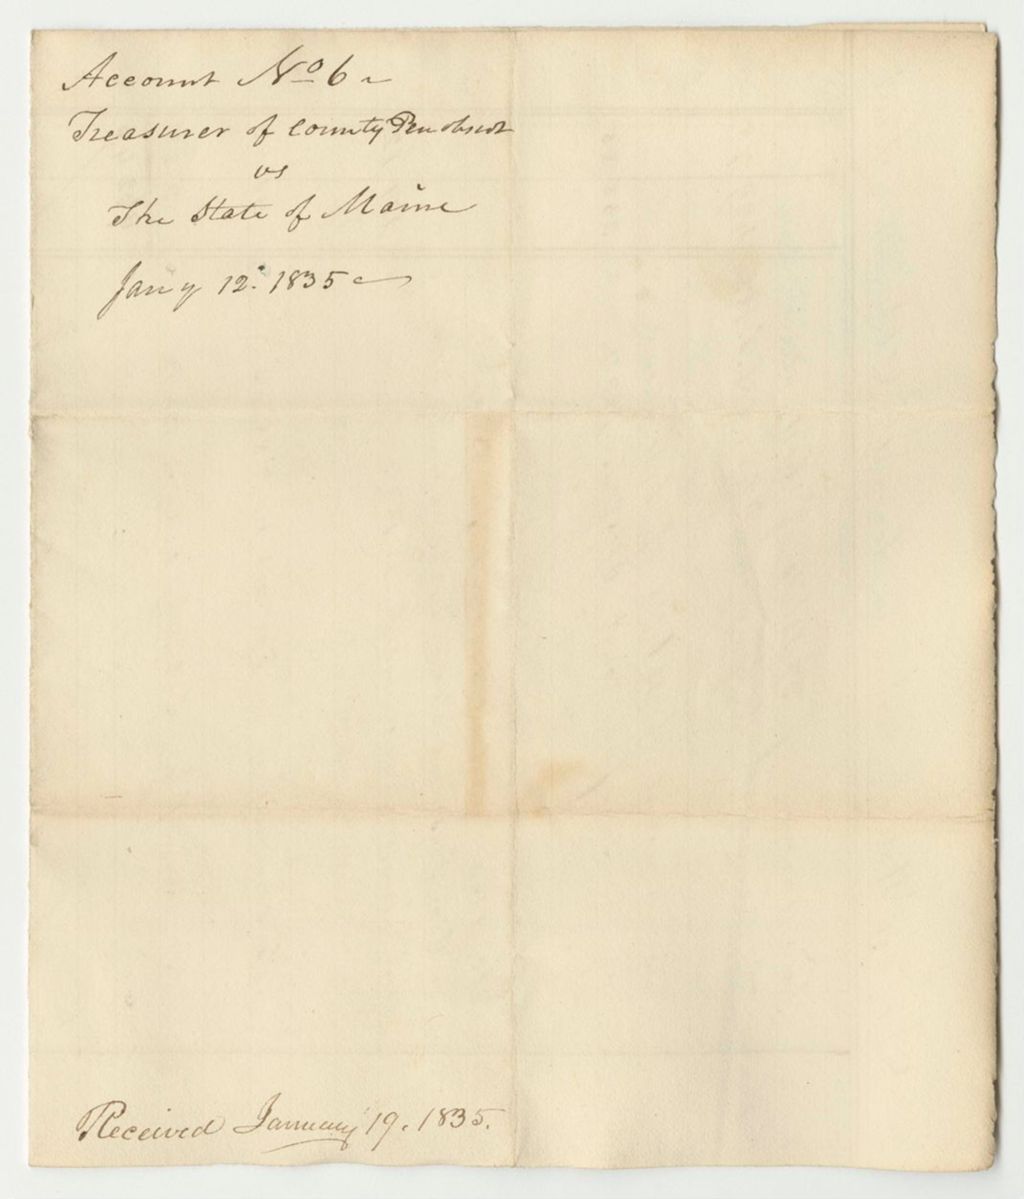 Account No 6
Treasurer of County Penobscot
vs
The State of Maine
Jany 12. 1835
Received January 19. 1835.